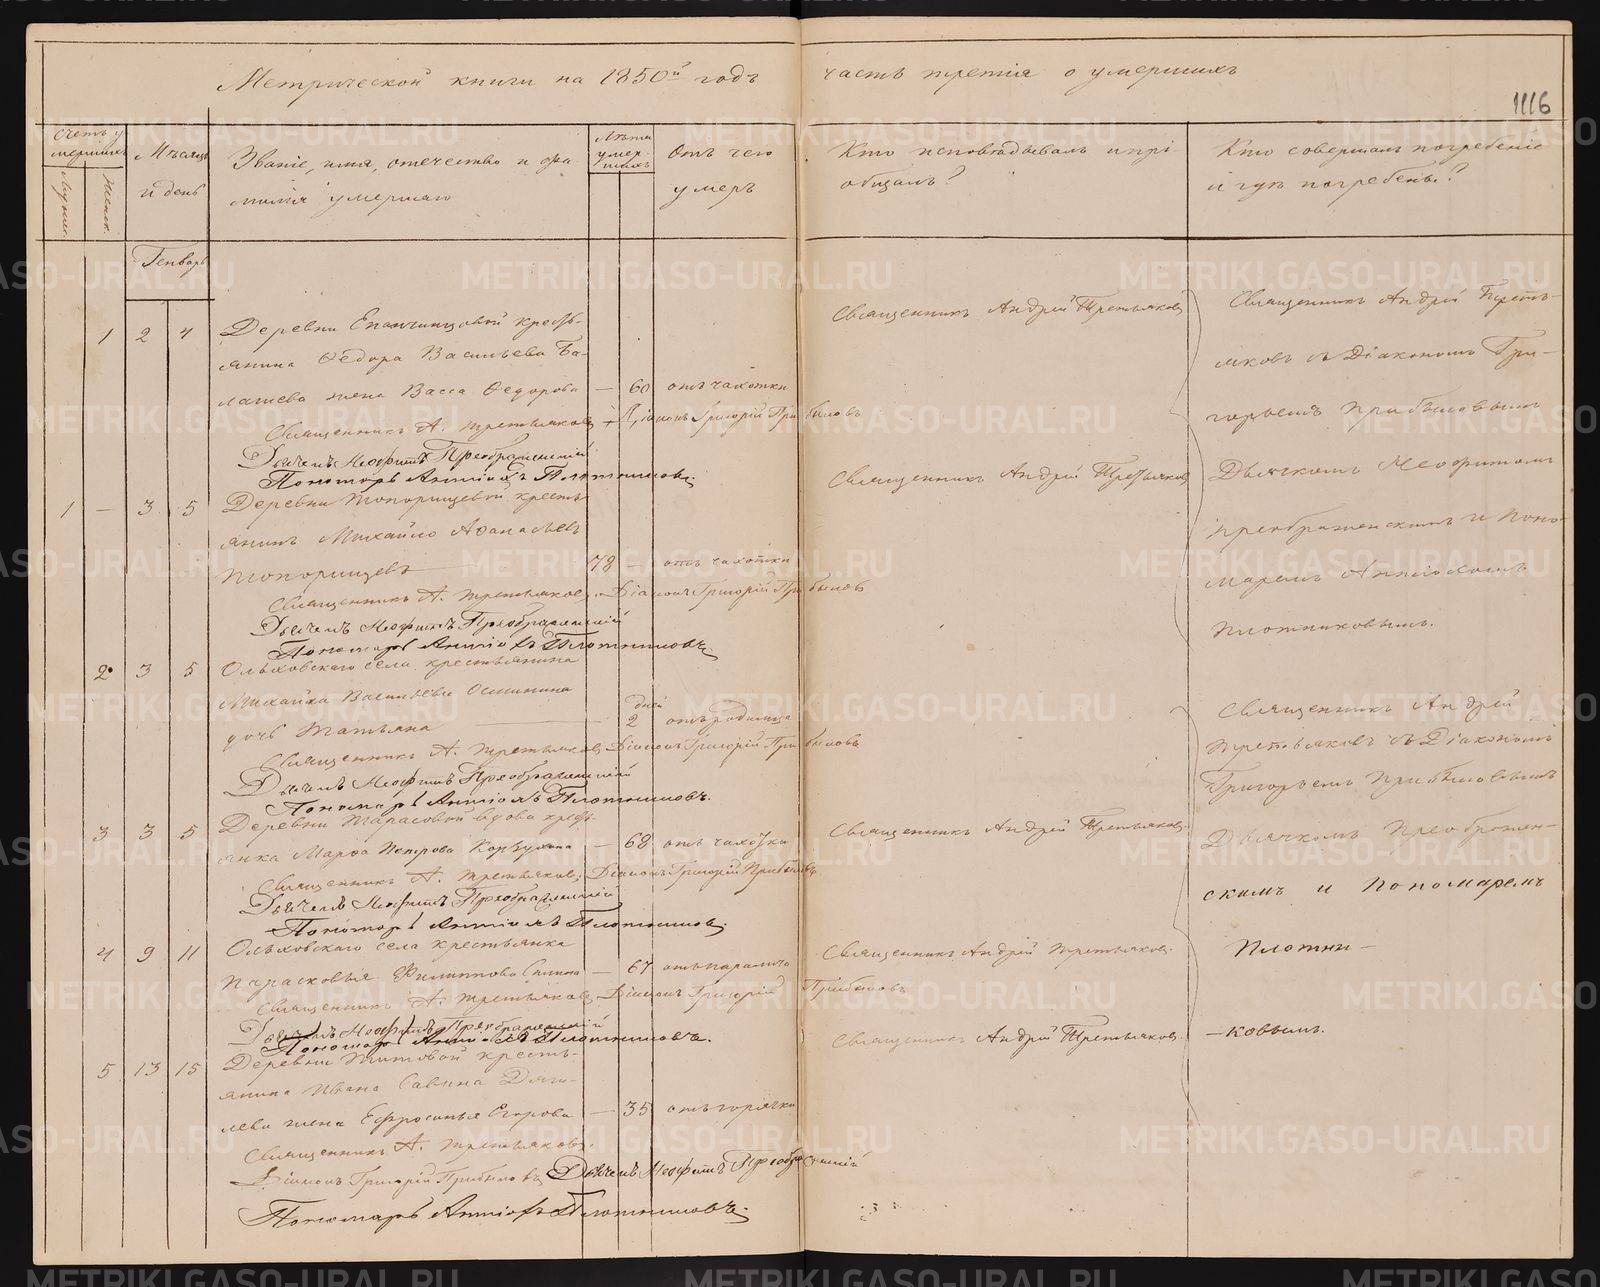 Метрической книги на 1850й годъ часть третія о умершихъ
1116
Счетъ у
мершихъ
Мужск.
Женск.
Мѣсяцъ
и день
Званіе, имя, отечество и фа
милія умершаго
Лѣта
умер-
шихъ
Отъ чего
умеръ
Кто исповѣдывалъ и прі-
общалъ?
Кто совершалъ погребеніе
и гдѣ погребены?
Генварь
1 2 4 Деревни Епанчинцовой кресть-
янина Ѳедора Васильева Ба-
лашева жена Васса Ѳедорова — 60 отъ чахотки
Священникъ Андрей Третьяковъ
Священникъ А. Третьяковъ Діаконъ Григорій Прибыловъ
Дьячекъ Неофитъ Преображенскій
Пономарь Антіохъ Плотниковъ.
1 — 3 5 Деревни Топорищевой кресть-
янинъ Михайло Аѳанасьевъ
Топорищевъ — 78 — отъ чахотки
Священникъ Андрей Третьяковъ
Священникъ А. Третьяковъ Діаконъ Григорій Прибыловъ
Дьячекъ Неофитъ Преображенскій
Пономарь Антіохъ Плотниковъ.
2 3 5 Ольховскаго села крестьянина
Михайла Васильева Осинина
дочь Татьяна — дней 2 отъ родимца
Священникъ А. Третьяковъ Діаконъ Григорій Прибыловъ
Дьячекъ Неофитъ Преображенскій
Пономарь Антіохъ Плотниковъ.
3 3 5 Деревни Тарасовой вдова кресть-
янка Марѳа Петрова — 68 отъ чахотки
Священникъ Андрей Третьяковъ
Священникъ А. Третьяковъ Діаконъ Григорій Прибыловъ
Дьячекъ Неофитъ Преображенскій
Пономарь Антіохъ Плотниковъ.
4 9 11 Ольховскаго села крестьянка
Парасковья Филиппова — 67 отъ паралича
Священникъ Андрей Третьяковъ.
Священникъ А. Третьяковъ Діаконъ Григорій Прибыловъ
Дьячекъ Неофитъ Преображенскій
Пономарь Антіохъ Плотниковъ.
5 13 15 Деревни Титовой кресть-
янина Ивана Савина Дяги-
лева жена Ефросинья Егорова — 35 отъ горячки
Священникъ Андрей Третьяковъ.
Священникъ А. Третьяковъ.
Діаконъ Григорій Прибыловъ Дьячекъ Неофитъ Преображенскій
Пономарь Антіохъ Плотниковъ.
Священникъ Андрей Треть-
яковъ съ Діакономъ Гри-
горьемъ Прибыловымъ
Дьячкомъ Неофитомъ
Преображенскимъ и Поно-
маремъ Антіохомъ
Плотниковымъ.
Священникъ Андрей
Третьяковъ съ Діакономъ
Григорьемъ Прибыловымъ
Дьячкомъ Преображен-
скимъ и Пономаремъ
Плотни-
-ковымъ.
METRIKI.GASO-URAL.RU